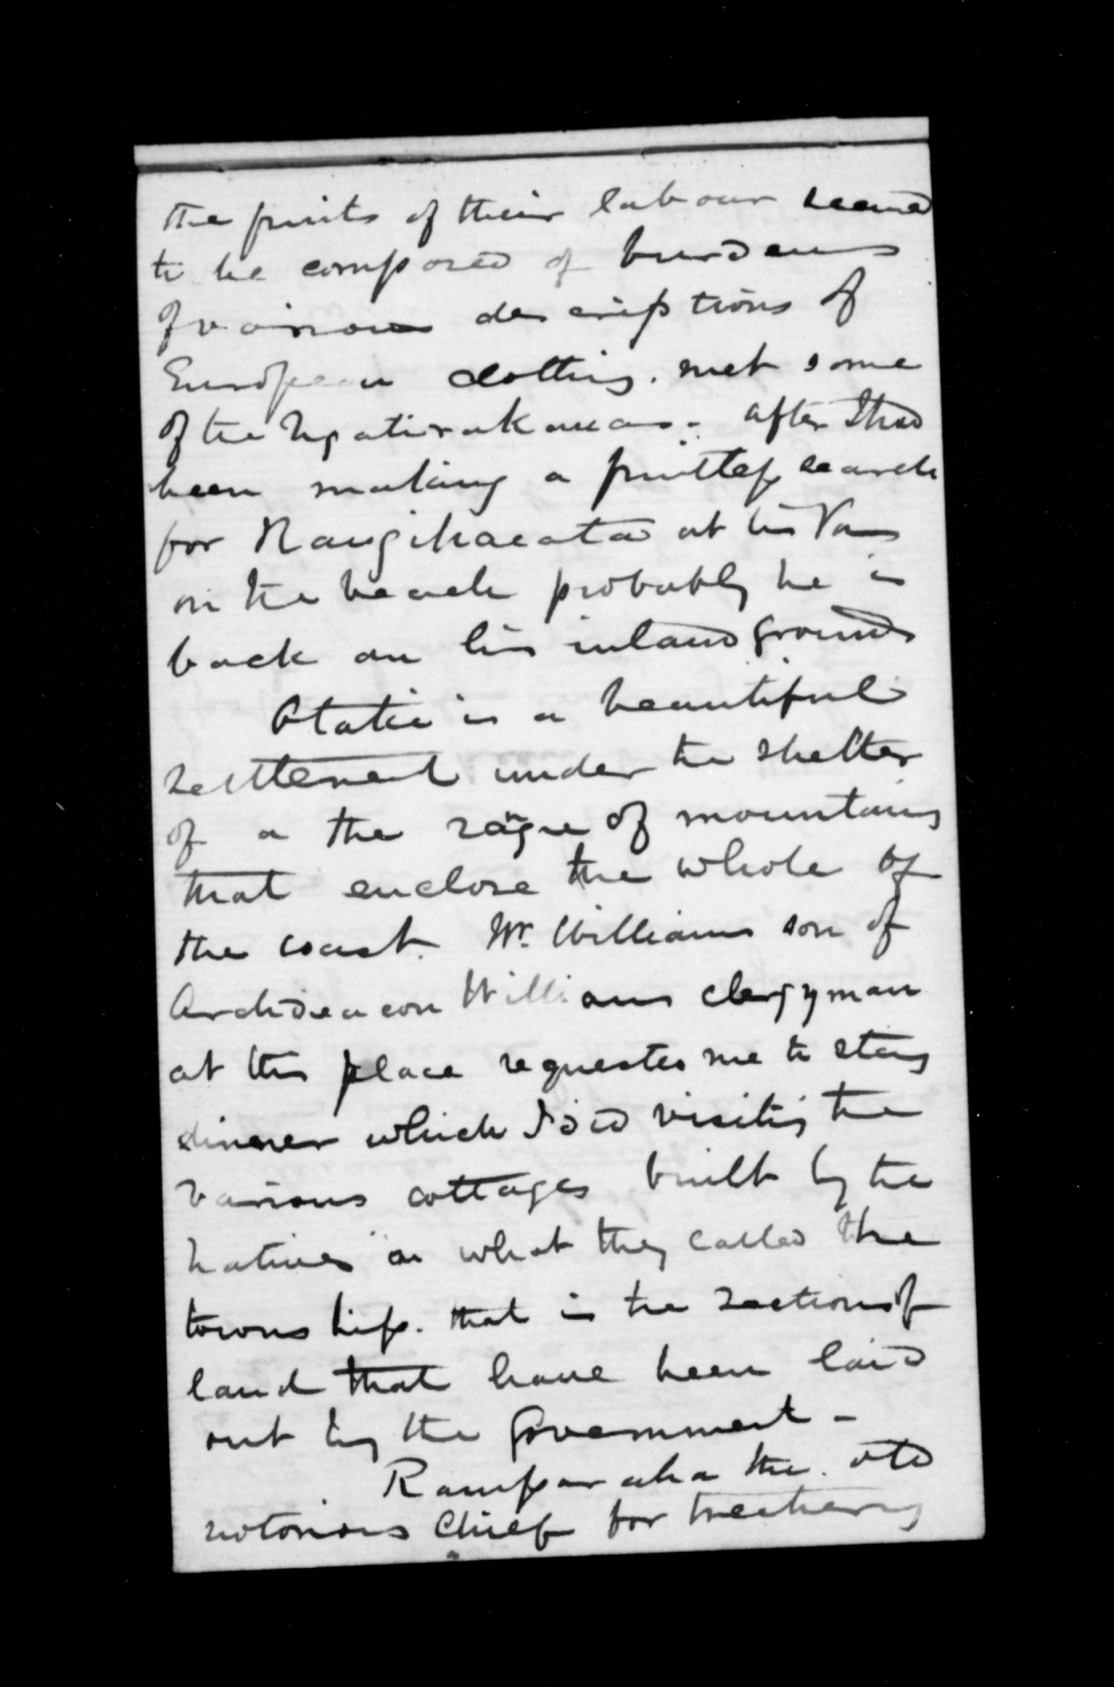 the fruits of their labour seemed
to be composed of burdens
of various descriptions of
European clothing. met some
of the Ngatiraukauas. after I had
been making a fruitless search
for Rangihaeata at his Pas
on the beach probably he is
back on his inland grounds
Otakie is a beautiful
settlement under the shelter
of a the range of mountains
that enclose the whole of
the coast. Mr. Williams son of
Archdeacon Williams clergyman
at this place requested me to stay
dinner which I did visiting the
various cottages built by the
natives on what they called the
township. that is the sections of
land that have been laid
out by the Government -
Rauparaha the old
notorious Chief for treachery